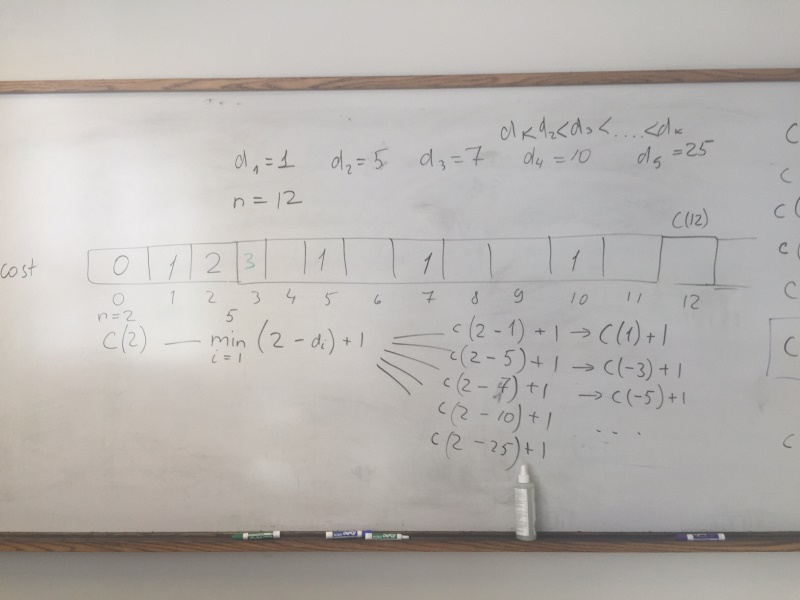 d₁<d₂<d₃<....<dₖ
d₁=1 d₂=5 d₃=7 d₄=10 d₅=25
n=12
C(12)
cost 0 1 2 3 1 1 1
0 1 2 3 4 5 6 7 8 9 10 11 12
n=2 5
C(2) — min (2-dᵢ)+1
i=1
c(2-1)+1 → C(1)+1
c(2-5)+1 → C(-3)+1
c(2-7)+1 → C(-5)+1
c(2-10)+1 ...
c(2-25)+1
C
C
C(
C(
C
C
C